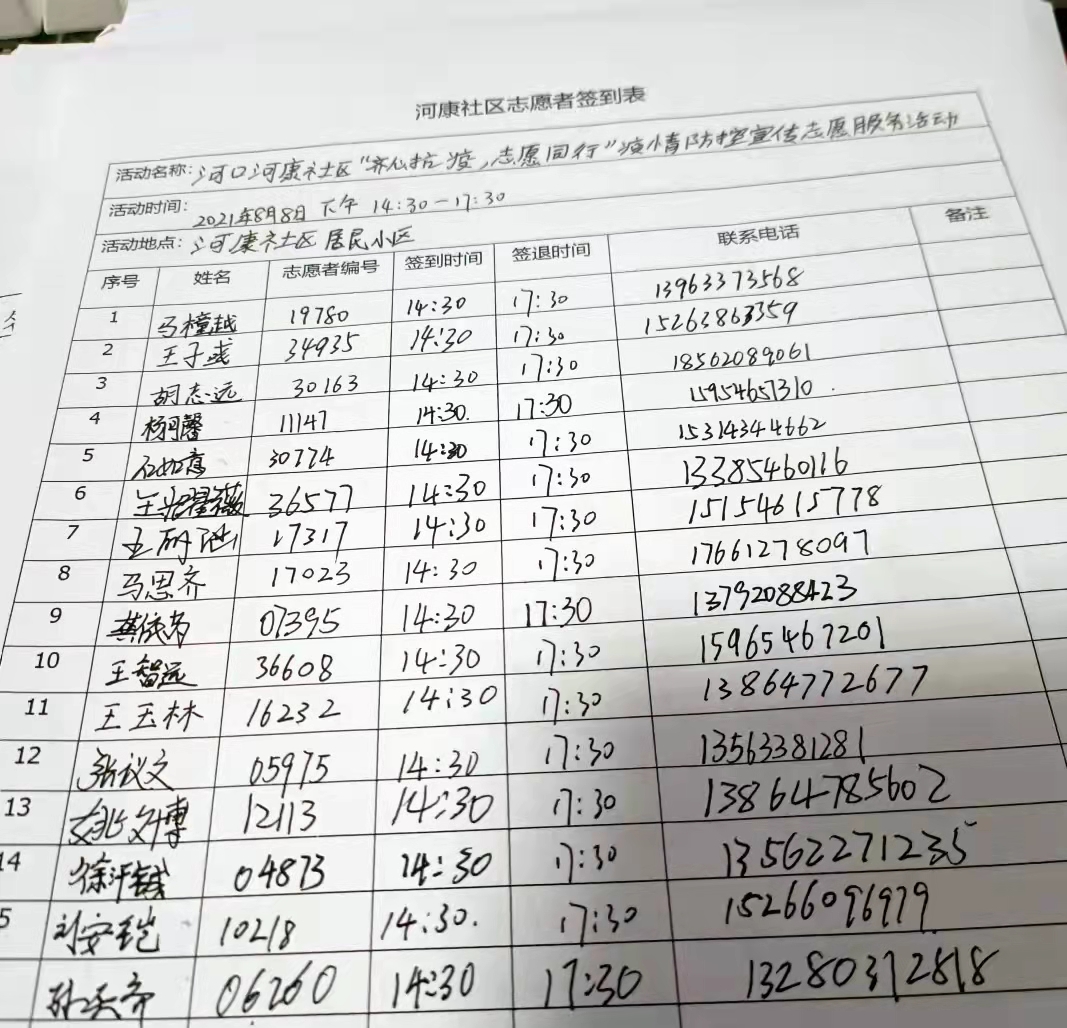 河康社区志愿者签到表
活动名称:河口河康社区“齐心抗疫,志愿同行”疫情防控宣传志愿服务活动
活动时间: 2021年8月8日 下午 14:30-17:30
活动地点:河康社区居民小区
序号 姓名 志愿者编号 签到时间 签退时间 联系电话 备注
1 马橦越 19780 14:30 17:30 13963373568
2 王子彧 34935 14:30 17:30 15263863359
3 胡志远 30163 14:30 17:30 18562089061
4 杨可馨 11147 14:30 17:30 15954657310
5 石如意 30774 14:30 17:30 15314344662
6 36577 14:30 17:30 13385460116
7 17317 14:30 17:30 15154615778
8 马思齐 17023 14:30 17:30 17661278097
9 07395 14:30 17:30 13792088423
10 王智远 36608 14:30 17:30 15965467201
11 王玉林 16232 14:30 17:30 13864772677
12 张议文 05975 14:30 17:30 13563381281
13 姚文博 12113 14:30 17:30 13864785602
14 04873 14:30 17:30 13562271235
5 刘安铠 10218 14:30 17:30 15266096979
06260 14:30 17:30 13280372818